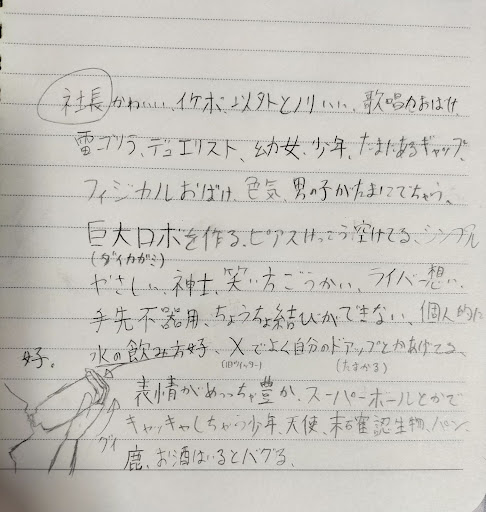 社長 かわいい、イケボ、以外とノリいい、歌唱力おばけ
雷ゴリラ、デュエリスト、幼女、少年、たまにあるギャップ、
フィジカルおばけ、色気、男の子がたまにでちゃう、
巨大ロボを作る、ピアスけっこう空けてる、シンプル
(ダイカガミ)
やさしい、神士、笑い方ごうかい、ライバー想い、
手先不器用、ちょうちょ結びができない、個人的に
好。 水の飲み方好、Xでよく自分のドアップとかあげてる、
(旧ツイッター) (たすかる)
表情がめっちゃ豊か、スーパーボールとかで
キャッキャしちゃう少年、天使、未確認生物、パン、
グイ
鹿、お酒はいるとバグる、